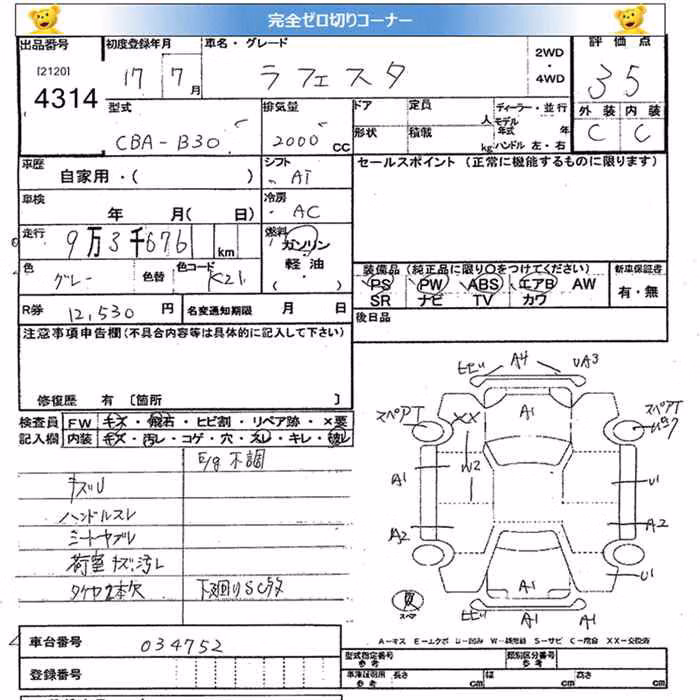 完全ゼロ切りコーナー
出品番号 初度登録年月 車名・グレード 2WD・4WD 評価点
[2120]
4314 17 7月 ラフェスタ 35
外装 内装
C C
型式 排気量 ドア 定員 人 ディーラー・並行
CBA-B30 2000 CC 形状 積載 kg モデル年式 年 ハンドル 左・右
車歴 シフト セールスポイント (正常に機能するものに限ります)
自家用・( ) AT
車検 冷房
年 月( 日) AC
走行 燃料
9万3千676 km ガソリン
軽油
( )
色 色替 色コード
グレー K21
装備品 (純正品に限り○をつけてください) 新車保証書
PS PW ABS エアB AW 有・無
SR ナビ TV カワ
R券 12,530円 名変通知期限 月 日
後日品
注意事項申告欄(不具合内容等は具体的に記入して下さい)
修復歴 有 〔箇所 〕
検査員 FW キズ・飛石・ヒビ割・リペア跡・×要
記入欄 内装 キズ・汚レ・コゲ・穴・スレ・キレ・破レ
E/g 不調
キズU
ハンドルスレ
シートヤブレ
荷室キズ汚レ
タイヤ2本欠 下廻りSCタタ
車台番号 034752
登録番号
ヒビ A4 UA3
スペアT XX A1 スペアT パンク
W2
A1 U1
A2 A2
A1 U1
夏
スペア
ヒビ A1 A1
A-キズ E-エクボ U-凹み W-補修跡 S-サビ C-腐食 XX-交換済
型式指定番号 参考 類別区分番号 参考
車庫証明用 参考 長さ cm 幅 cm 高さ cm